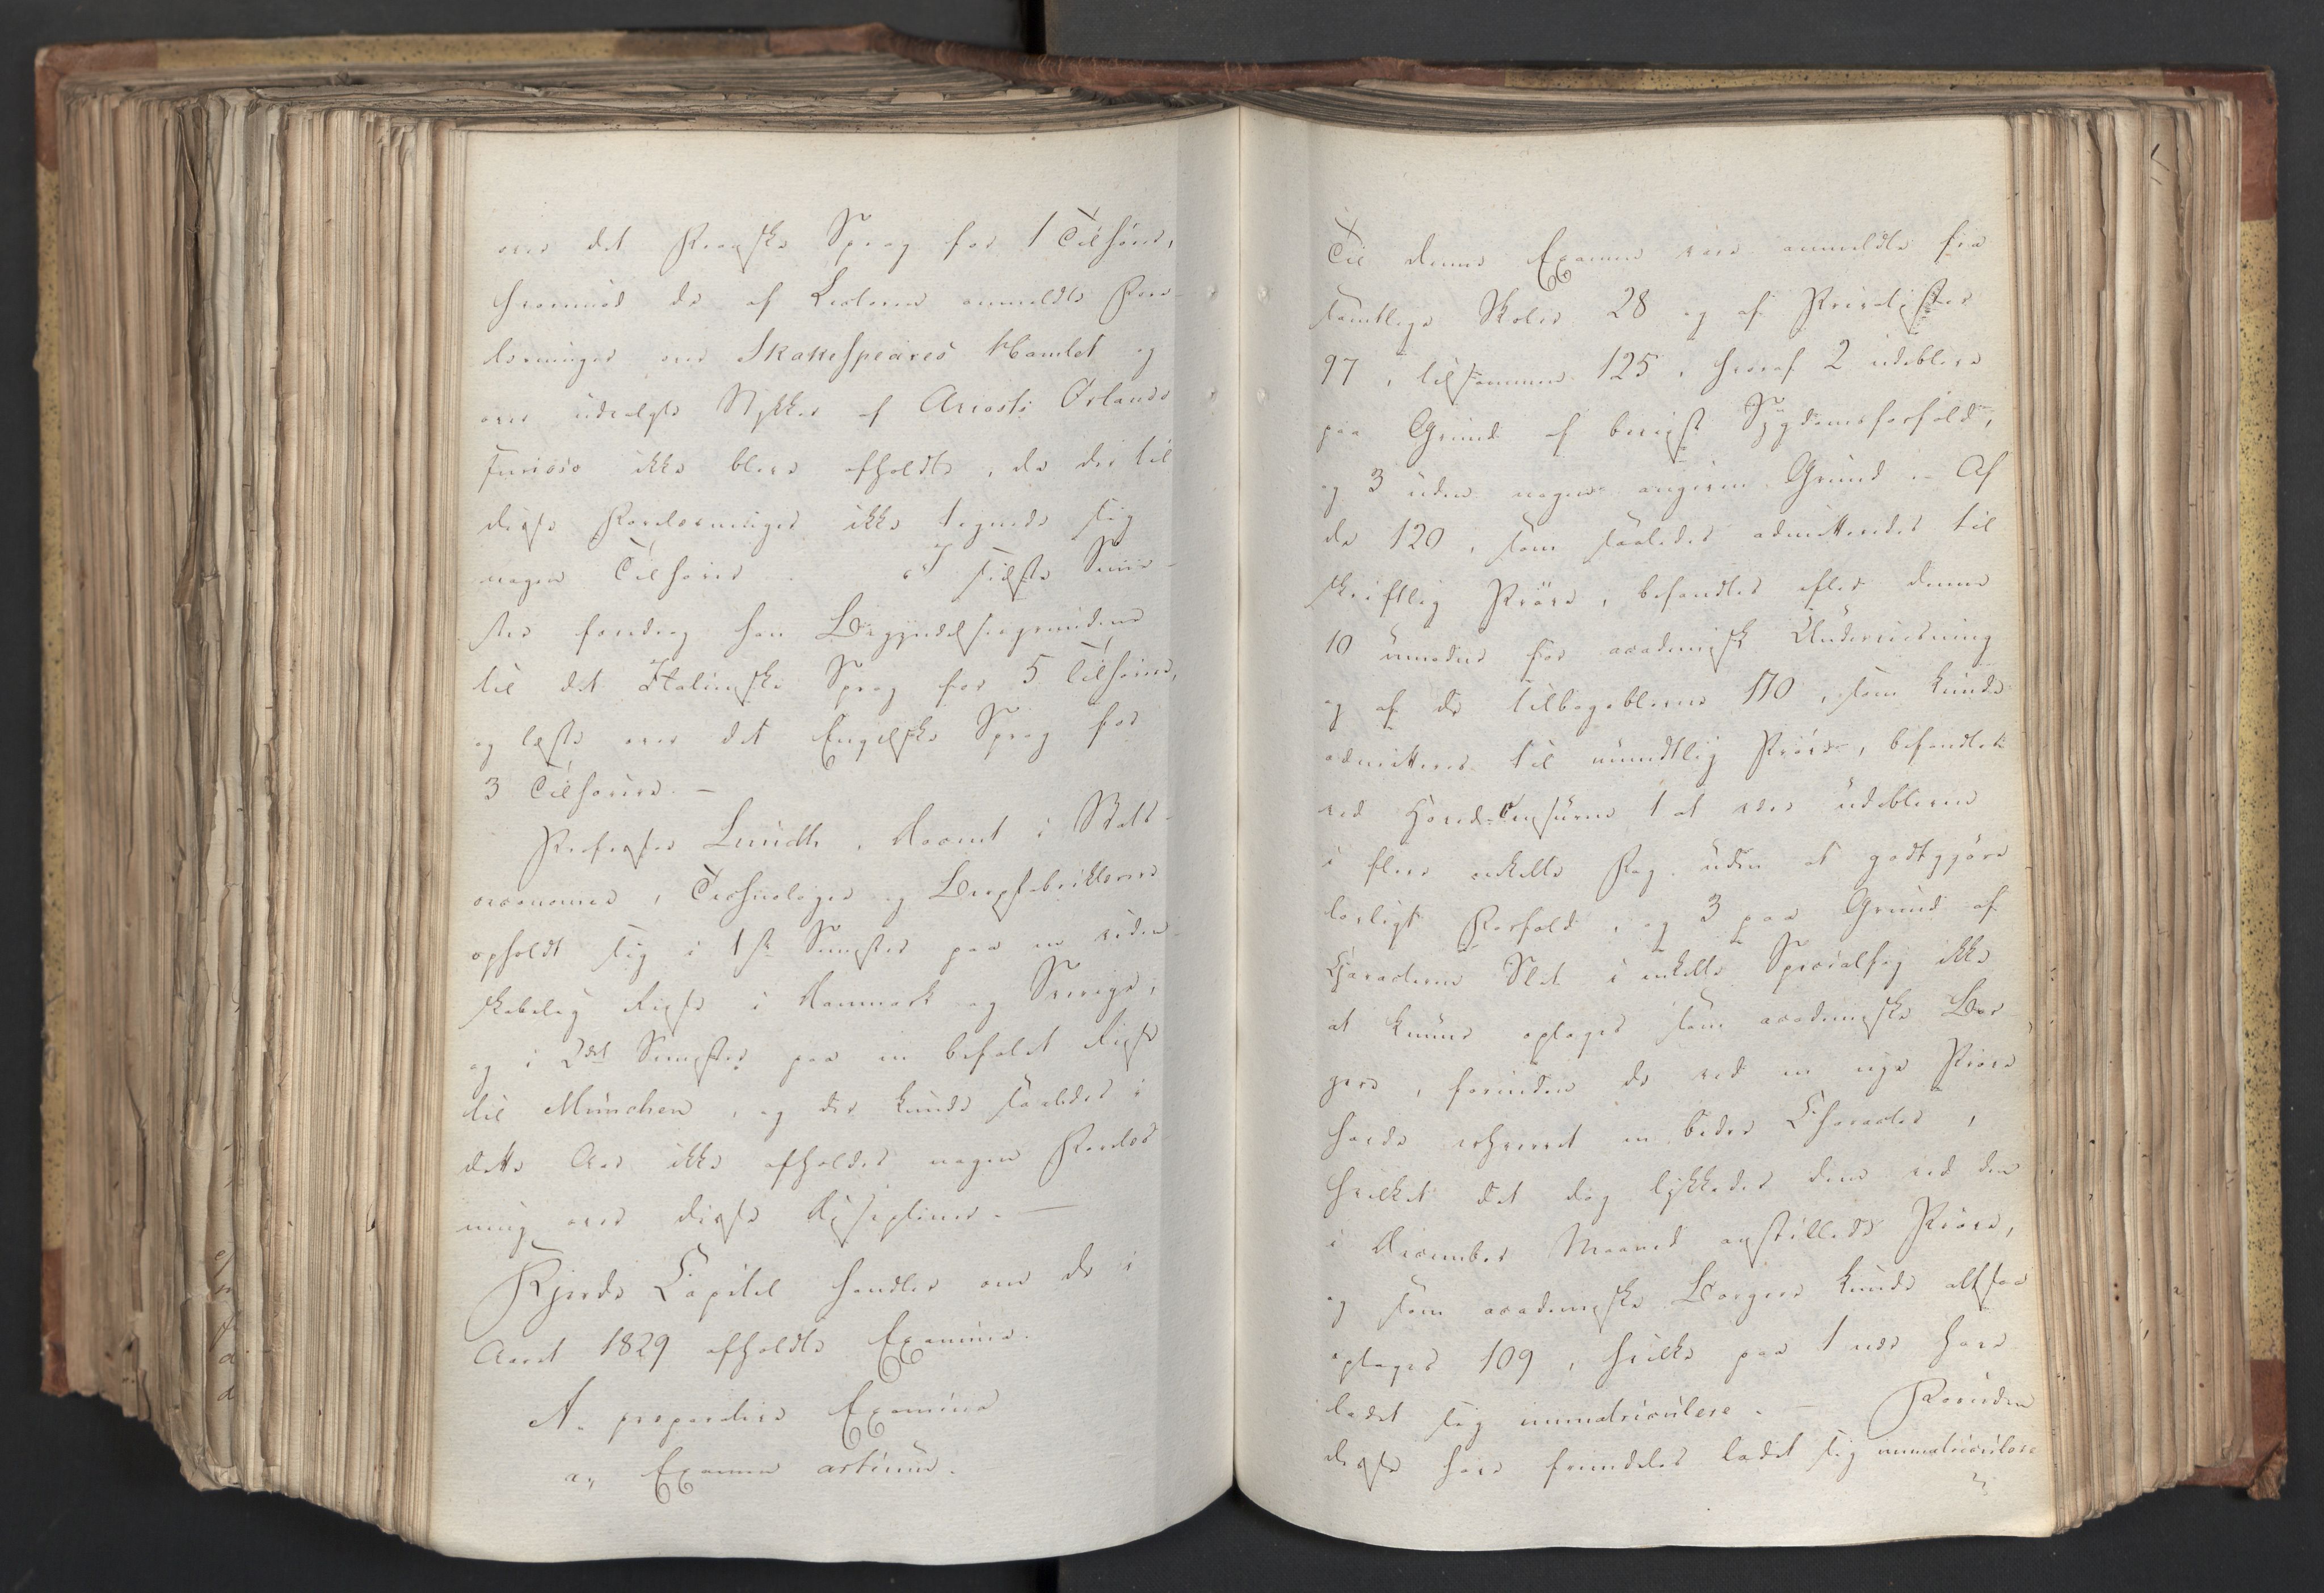 over det Franske Sprog for 1 Tilhører,
hvorimod de af Lectoren anmeldte Fore-
læsninger over Shakespeares Hamlet og
over udvalgte Stykker af Ariosts Orlando
furioso ikke bleve afholdte, da der til
disse Forelæsninger ikke tegnede sig
nogen Tilhører. I sidste Seme-
ster foredrog han Begyndelsesgrundene
til det Italienske Sprog for 5 Tilhørere,
og læste over det Engelske Sprog for
3 Tilhørere. –
Professor Lundh, Docent i Stats-
oeconomie, Technologie og Bergfabriklære
opholdt sig i 1ste Semester paa en viden-
skabelig Reise i Danmark og Sverige,
og i 2det Semester paa en befalet Reise
til München, og der kunde saaledes i
dette Aar ikke afholdes nogen Forelæs-
ning over disse Discipliner. –
Fjerde Capitel handler om de i
Aaret 1829 afholdte Examina.
A. præparative Examina
a, Examen artium.
Til denne Examen vare anmeldte fra
samtlige Skoler 28 og af Privatister
97, tilsammen 125, hvoraf 2 udebleve
paa Grund af beviist Sygdomsforfald,
og 3 uden nogen angiven Grund. – Af
de 120, som saaledes admitteredes til
skriftlig Prøve, befandtes efter denne
10 umodne for academisk Underviisning
og af de tilbageblevne 110, som kunde
admitteres til mundtlig Prøve, befandtes
ved Hoved-Censuren 1 at være udebleven
i flere enkelte Fag uden at godtgjøre
lovligt Forfald, og 3 paa Grund af
Characteren Slet i enkelte Specialfag ikke
at kunne optages som academiske Bor-
gere, forinden de ved en nye Prøve
havde erhvervet en bedre Character,
hvilket det dog lykkedes dem ved den
i December Maaned anstillede Prøve,
og som academiske Borgere kunde altsaa
optages 109, hvilke paa 1 nær have
ladet sig immatriculere. – Foruden
disse have fremdeles ladet sig immatriculere